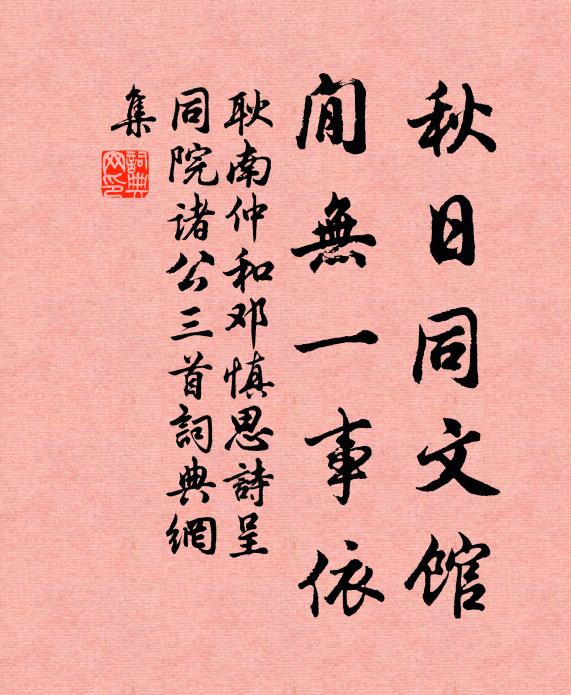 秋日同文馆
閒無一事依
耿南仲和邓慎思詩呈
同院诸公三首詞典網
集
詞典網印